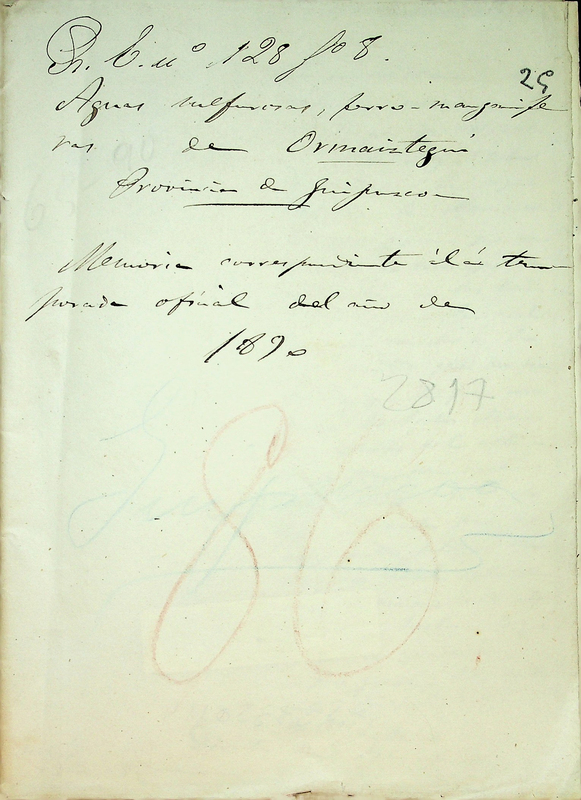 R. E. nº 128 fº 8.
25
Aguas sulfurosas, ferro-manganife
ras de Ormaiztegui
Provincia de Guipuzcoa
Memoria correspondiente á la tem
porada oficial del año de
1890
2817
86
Guipuzcoa